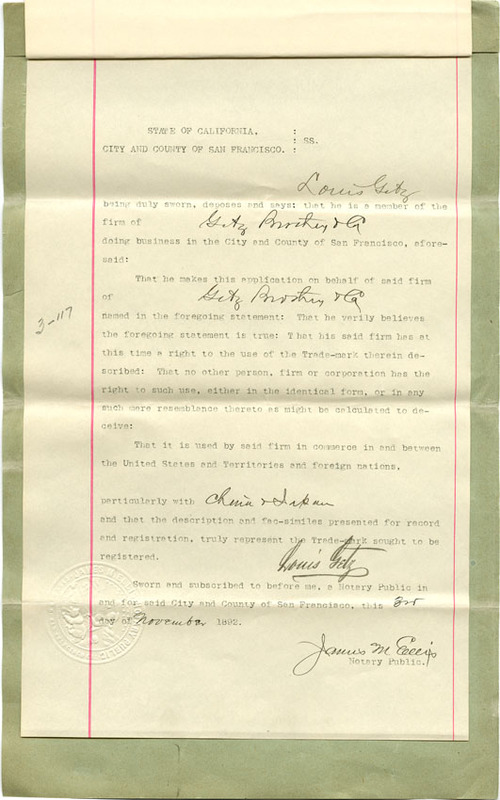 STATE OF CALIFORNIA. :
: SS.
CITY AND COUNTY OF SAN FRANCISCO. :
Louis Getz
being duly sworn, deposes and says: that he is a member of the
firm of Getz Brothers & Co
doing business in the City and County of San Francisco, afore-
said:
That he makes this application on behalf of said firm
of Getz Brothers & Co
named in the foregoing statement: That he verily believes
the foregoing statement is true: That his said firm has at
this time a right to the use of the Trade-mark therein de-
scribed: That no other person, firm or corporation has the
right to such use, either in the identical form, or in any
such mere resemblance thereto as might be calculated to de-
ceive:
That it is used by said firm in commerce in and between
the United States and Territories and foreign nations,
particularly with China & Japan
and that the description and fac-similes presented for record
and registration, truly represent the Trade-mark sought to be
registered. Louis Getz
Sworn and subscribed to before me, a Notary Public in
and for said City and County of San Francisco, this 3rd
day of November 1892.
James M Ellis
Notary Public.
3-117